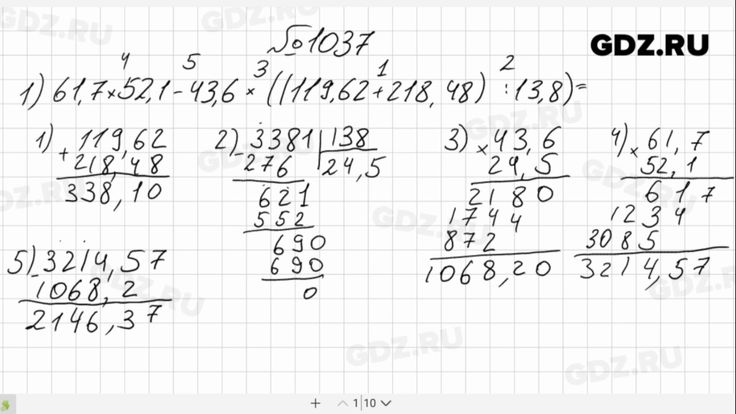 №1037
GDZ.RU
4 5 3 1 2
1) 61,7×52,1-43,6×((119,62+218,48):13,8)=
1) 119,62
+ 218,48
338,10
2) 3381 | 138
- 276 | 24,5
621
552
690
690
0
3) × 43,6
24,5
2180
1744
872
1068,20
4) × 61,7
52,1
617
1234
3085
3214,57
5) - 3214,57
1068,2
2146,37
+ 1|10